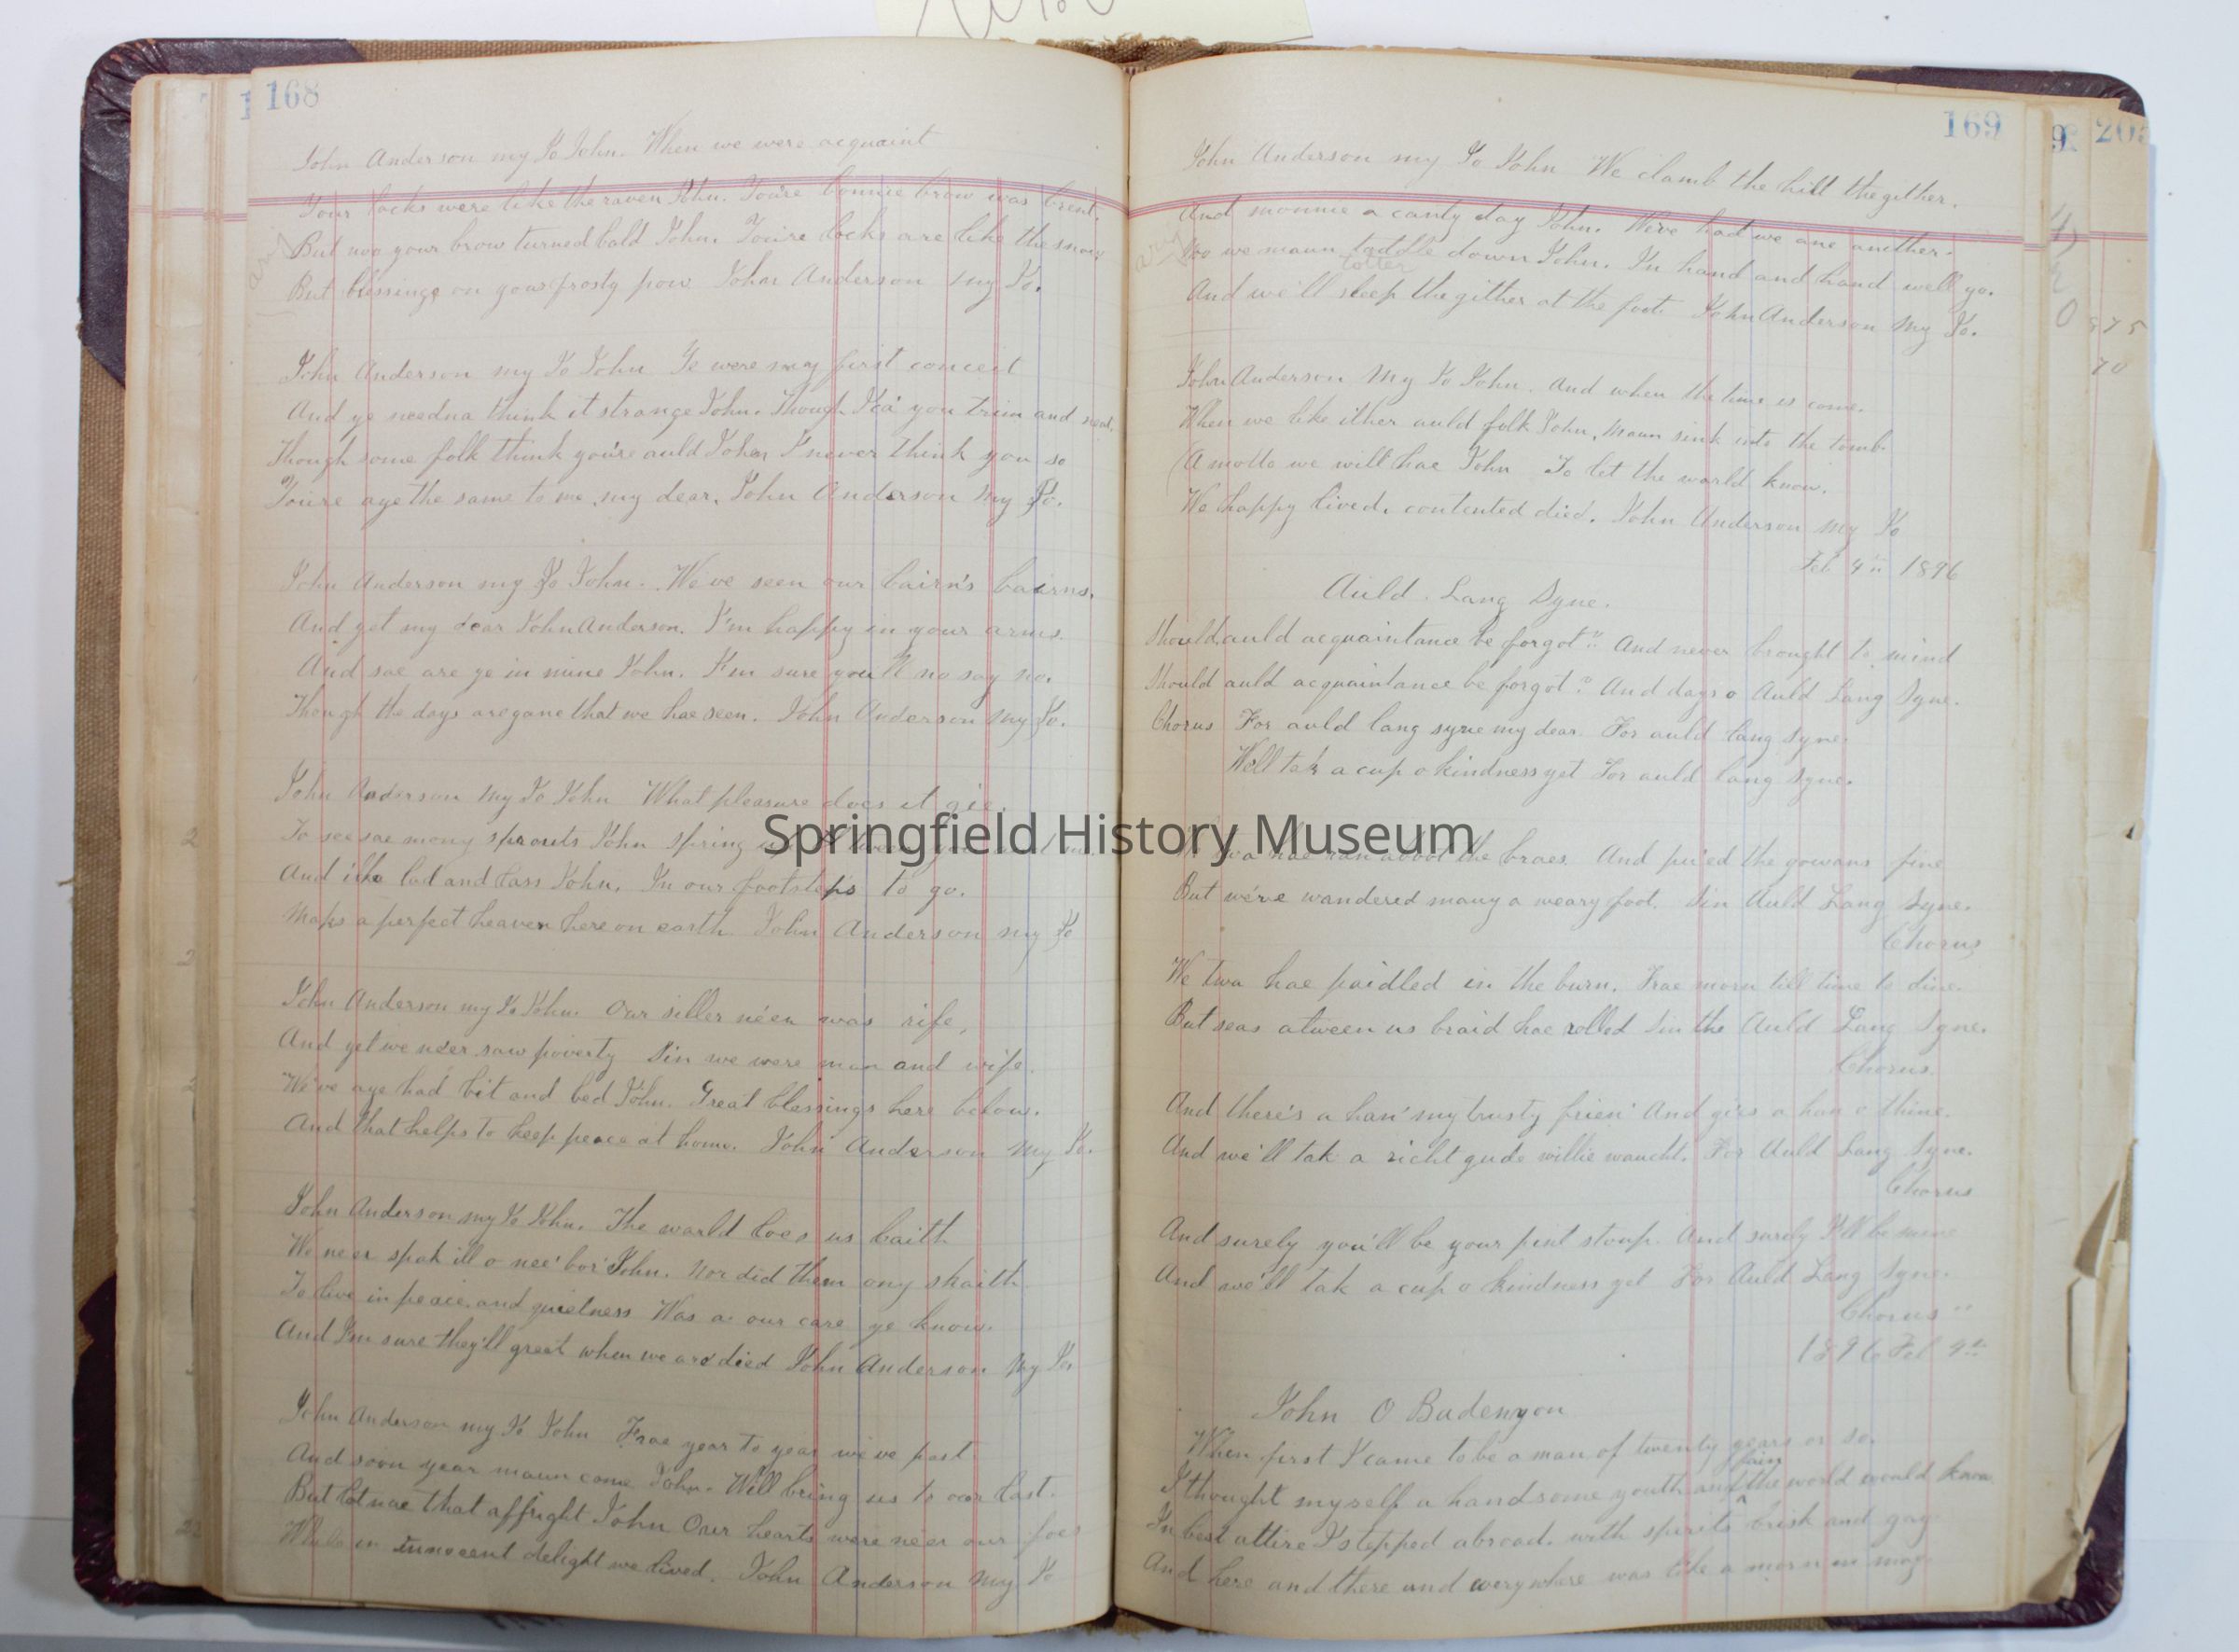 168
John Anderson my Jo John. When we were acquaint
Your locks were like the raven John. You're bonnie brow was brent.
But noo your brow turned bald John. You're locks are like the snow
But blessings on your frosty pow John Anderson my Jo.
John Anderson my Jo John Ye were my first conceit
And ye needna think it strange John. Though I ca' you trim and neat.
Though some folk think you're auld John I never think you so
You're aye the same to me my dear. John Anderson my Jo.
John Anderson my Jo John. We've seen our bairn's bairns.
And yet my dear John Anderson. I'm happy in your arms.
And sae are ye in mine John. I'm sure you'll no say no.
Though the days are gane that we hae seen. John Anderson my Jo.
John Anderson my Jo John What pleasure does it gie
To see sae mony sprouts John spring
And ilka lad and lass John. In our footsteps to go.
Maks a perfect heaven here on earth. John Anderson my Jo
John Anderson my Jo John. Our siller ne'er was rife,
And yet we ne'er saw poverty Sin we were man and wife.
We've aye had bit and bed John. Great blessings here below.
And that helps to keep peace at home. John Anderson my Jo.
John Anderson my Jo John. The warld loes us baith
We ne'er spak ill o nee'bor John. Nor did them ony skaith.
To live in peace and quietness Was a' our care ye know.
And I'm sure they'll greet when we are died John Anderson my Jo.
John Anderson my Jo John Frae year to year we've past
And soon year maun come John. Will bring us to our last.
But let nae that affright John Our hearts were ne'er our foes
While in innocent delight we lived. John Anderson my Jo
169
John Anderson my Jo John We clamb the hill thegither.
And monnie a canty day John. We've had we ane anither.
Noo we maun toddle down John. In hand and hand we'll go.
totter
And we'll sleep thegither at the foot. John Anderson my Jo.
John Anderson my Jo John. And when the time is come.
When we like ither auld folk John, maun sink into the tomb.
(A motto we will hae John To let the world know.
We happy lived, contented died. John Anderson my Jo
Feb 4" 1896
Auld Lang Syne.
Should auld acquaintance be forgot" And never brought to mind
Should auld acquaintance be forgot" And days o Auld Lang Syne.
Chorus For auld lang syne my dear. For auld lang syne.
We'll tak a cup o kindness yet For auld lang syne.
twa hae ran aboot the braes. And pu'ed the gowans fine
But we've wandered many a weary foot. Sin Auld Lang Syne.
Chorus
We twa hae paidled in the burn. Frae morn till time to dine.
But seas atween us braid hae rolled Sin the Auld Lang Syne.
Chorus.
And there's a han' my trusty frien' And gies a han o thine.
And we'll tak a richt gude willie waucht. For Auld Lang Syne.
Chorus
And surely you'll be your pint stoup. And surely I'll be mine
And we'll tak a cup o kindness yet For Auld Lang Syne.
Chorus"
1896 Feb 4th
John O Badenyon
When first I came to be a man of twenty years or so.
fain
I thought myself a handsome youth and the world would know
In best attire I stepped abroad. with spirits brisk and gay
And here and there and everywhere was like a morn in may
Springfield History Museum